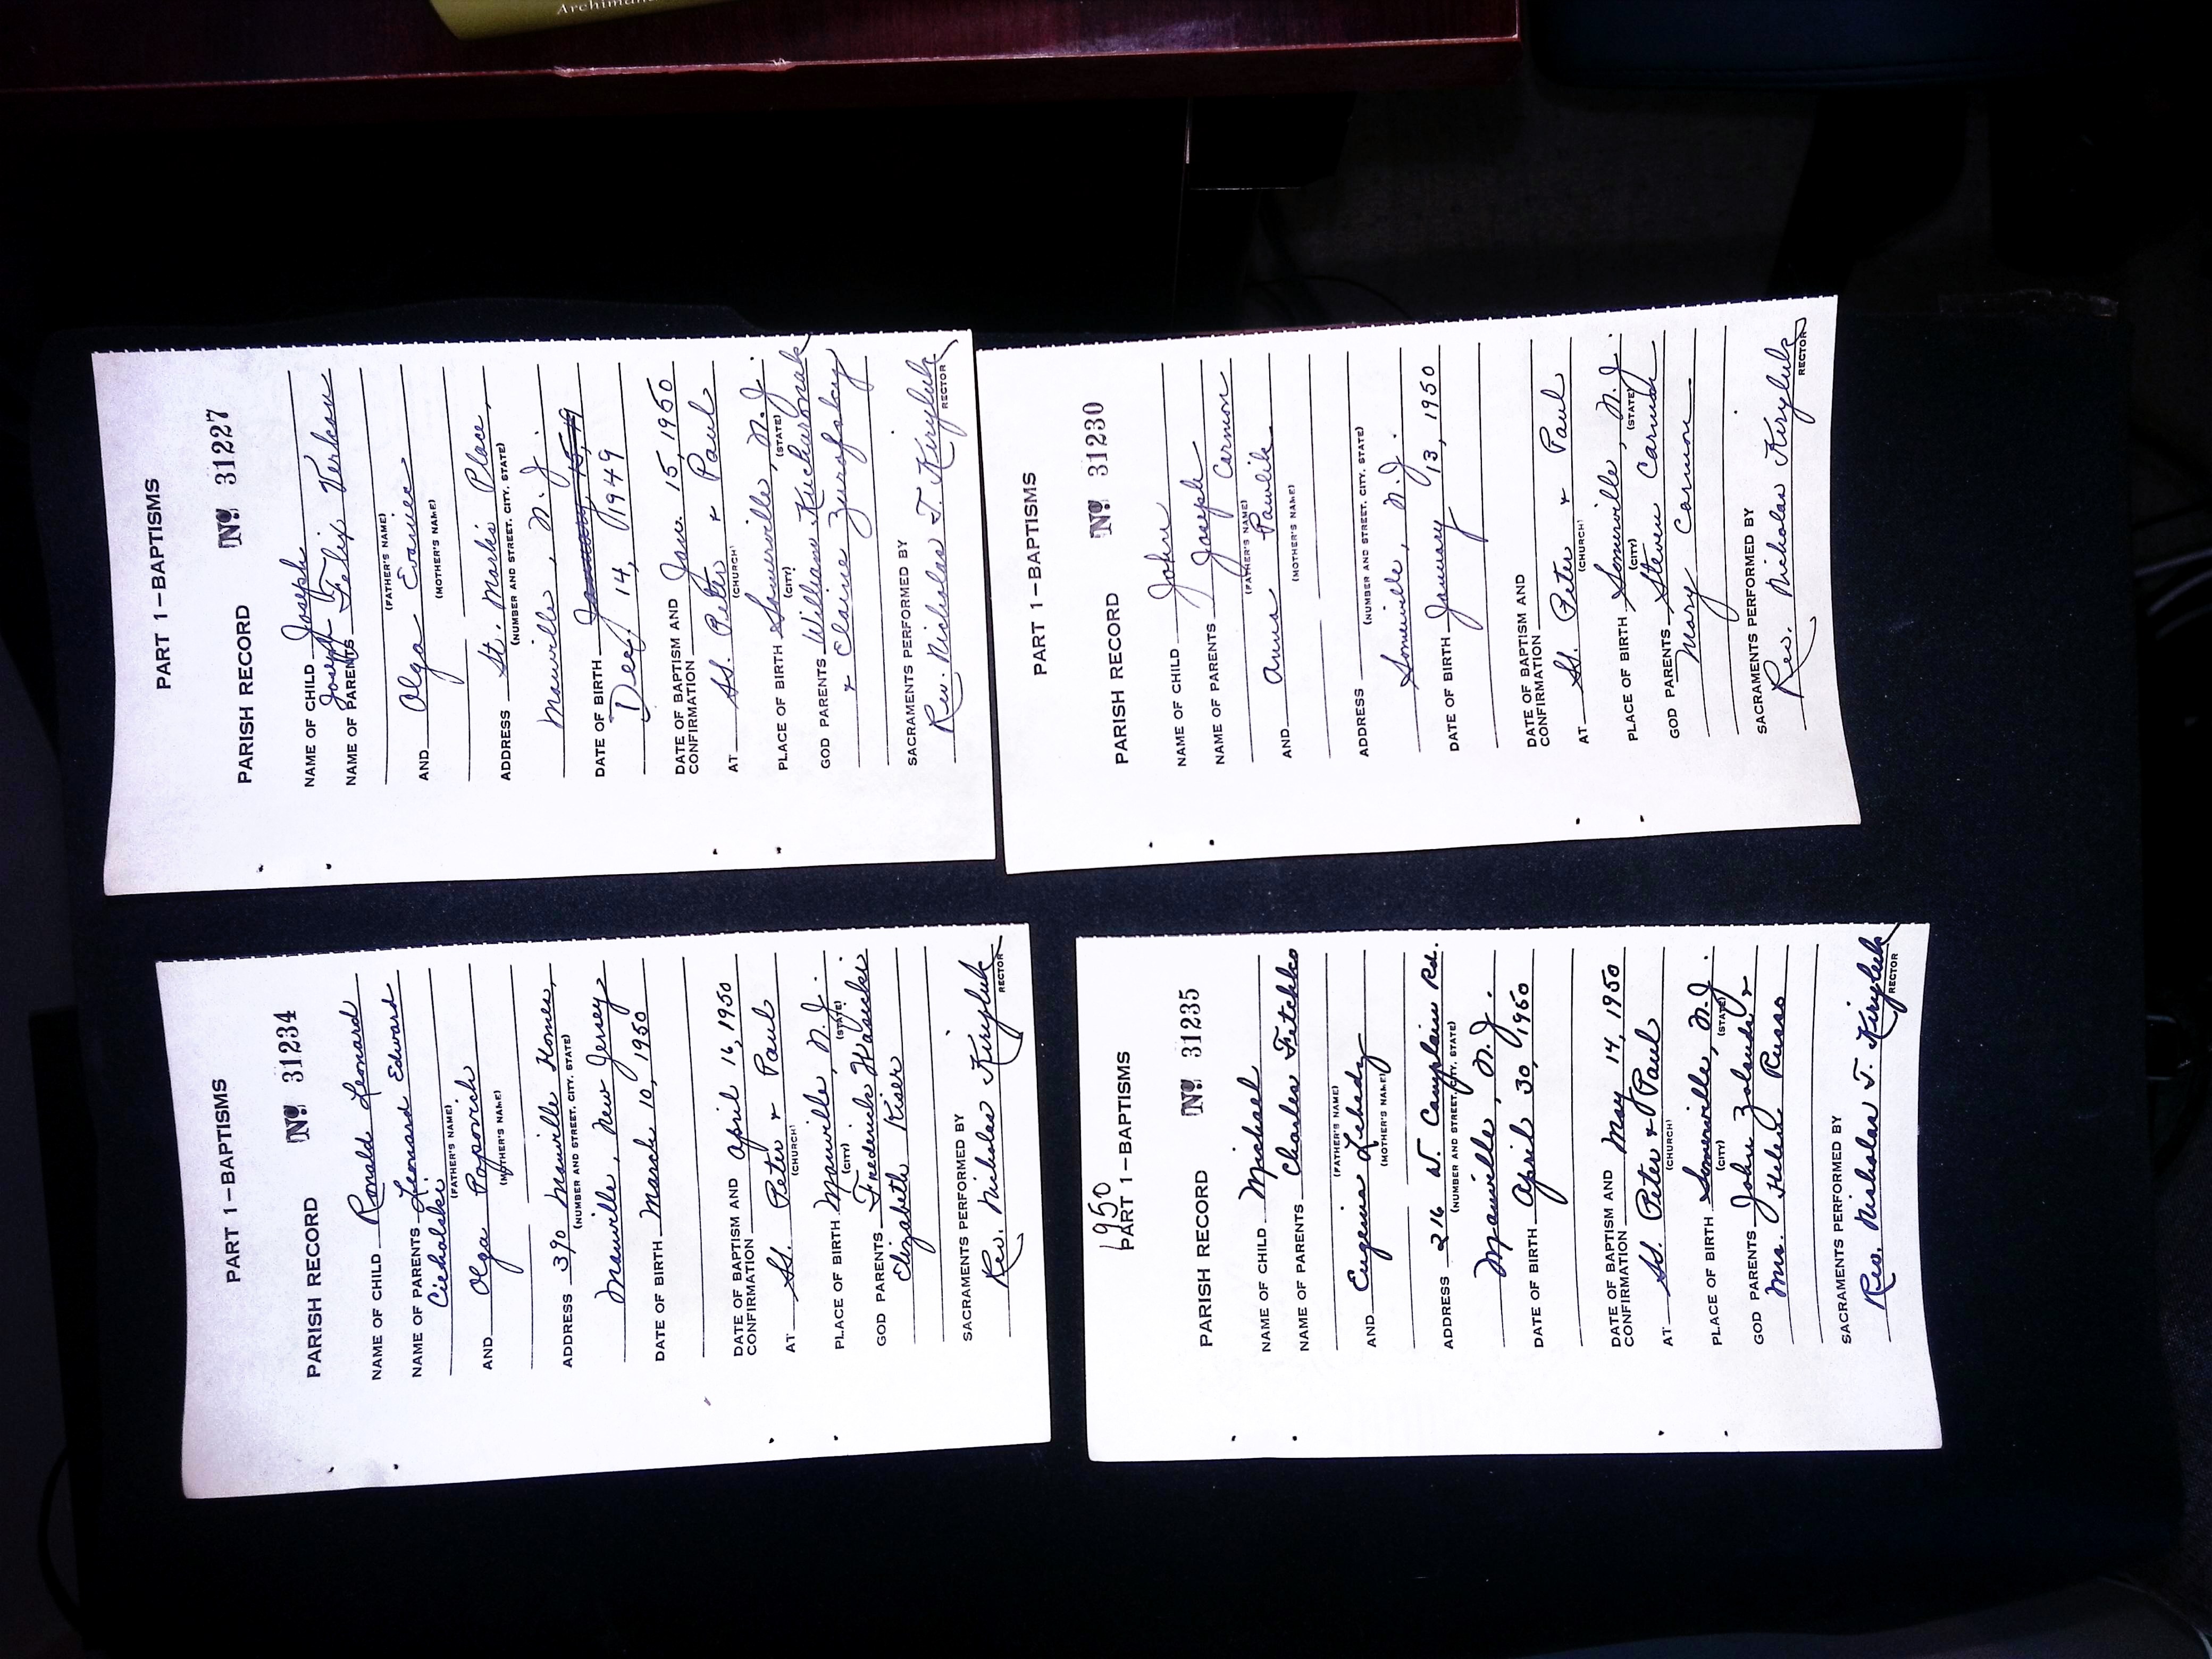 PART 1—BAPTISMS
PARISH RECORD No. 31234
NAME OF CHILD Ronald Leonard
NAME OF PARENTS Leonard Edward
Cichalski
(FATHER'S NAME)
AND Olga Popovich
(MOTHER'S NAME)
ADDRESS 390 Manville Homes,
(NUMBER AND STREET, CITY, STATE)
Manville, New Jersey
DATE OF BIRTH March 10, 1950
DATE OF BAPTISM AND
CONFIRMATION April 16, 1950
AT SS. Peter + Paul
(CHURCH)
PLACE OF BIRTH Manville, N.J.
(CITY) (STATE)
GOD PARENTS Frederick Wasicki
Elizabeth Kiser
SACRAMENTS PERFORMED BY
Rev. Nicholas Kiryluk
RECTOR
PART 1—BAPTISMS
PARISH RECORD No. 31227
NAME OF CHILD Joseph
Joseph
NAME OF PARENTS Felix Verkon
(FATHER'S NAME)
AND Olga
(MOTHER'S NAME)
ADDRESS St. Mark's Place,
(NUMBER AND STREET, CITY, STATE)
Manville, N.J.
DATE OF BIRTH January 15, 19
Dec. 14, 1949
DATE OF BAPTISM AND
CONFIRMATION Jan. 15, 1950
AT SS. Peter + Paul
(CHURCH)
PLACE OF BIRTH Somerville, N.J.
(CITY) (STATE)
GOD PARENTS William Kucharonak
+ Elaine Zurafsky
SACRAMENTS PERFORMED BY
Rev. Nicholas T. Kiryluk
RECTOR
1950
PART 1—BAPTISMS
PARISH RECORD No. 31235
NAME OF CHILD Michael
NAME OF PARENTS Charles Fetchko
(FATHER'S NAME)
AND Eugenia Lebedz
(MOTHER'S NAME)
ADDRESS 216 W. Camplain Rd.
(NUMBER AND STREET, CITY, STATE)
Manville, N.J.
DATE OF BIRTH April 30, 1950
DATE OF BAPTISM AND
CONFIRMATION May 14, 1950
AT SS. Peter + Paul
(CHURCH)
PLACE OF BIRTH Somerville, N.J.
(CITY) (STATE)
GOD PARENTS John Zolauda +
Mrs. Helen Russo
SACRAMENTS PERFORMED BY
Rev. Nicholas T. Kiryluk
RECTOR
PART 1—BAPTISMS
PARISH RECORD No. 31230
NAME OF CHILD John
NAME OF PARENTS Joseph
Carmon
(FATHER'S NAME)
AND Anna Pawlik
(MOTHER'S NAME)
ADDRESS
(NUMBER AND STREET, CITY, STATE)
Somerville, N.J.
DATE OF BIRTH January 13, 1950
DATE OF BAPTISM AND
CONFIRMATION
AT SS. Peter + Paul
(CHURCH)
PLACE OF BIRTH Somerville, N.J.
(CITY) (STATE)
GOD PARENTS Steven Carmon
Mary Carmon
SACRAMENTS PERFORMED BY
Rev. Nicholas Kiryluk
RECTOR